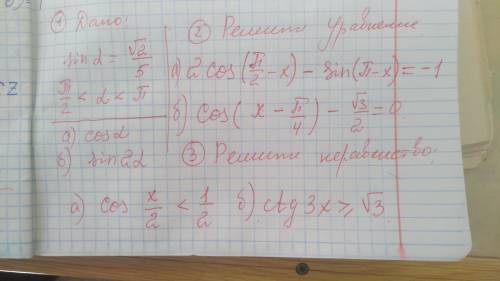 ① Дано:
sin α = √2/5
π/2 < α < π
а) cos α
б) sin 2α
② Решите уравнение
а) 2 cos(π/2 - x) - sin(π - x) = -1
б) cos(x - π/4) - √3/2 = 0
③ Решите неравенство:
а) cos x/2 < 1/2 б) ctg 3x ≥ √3